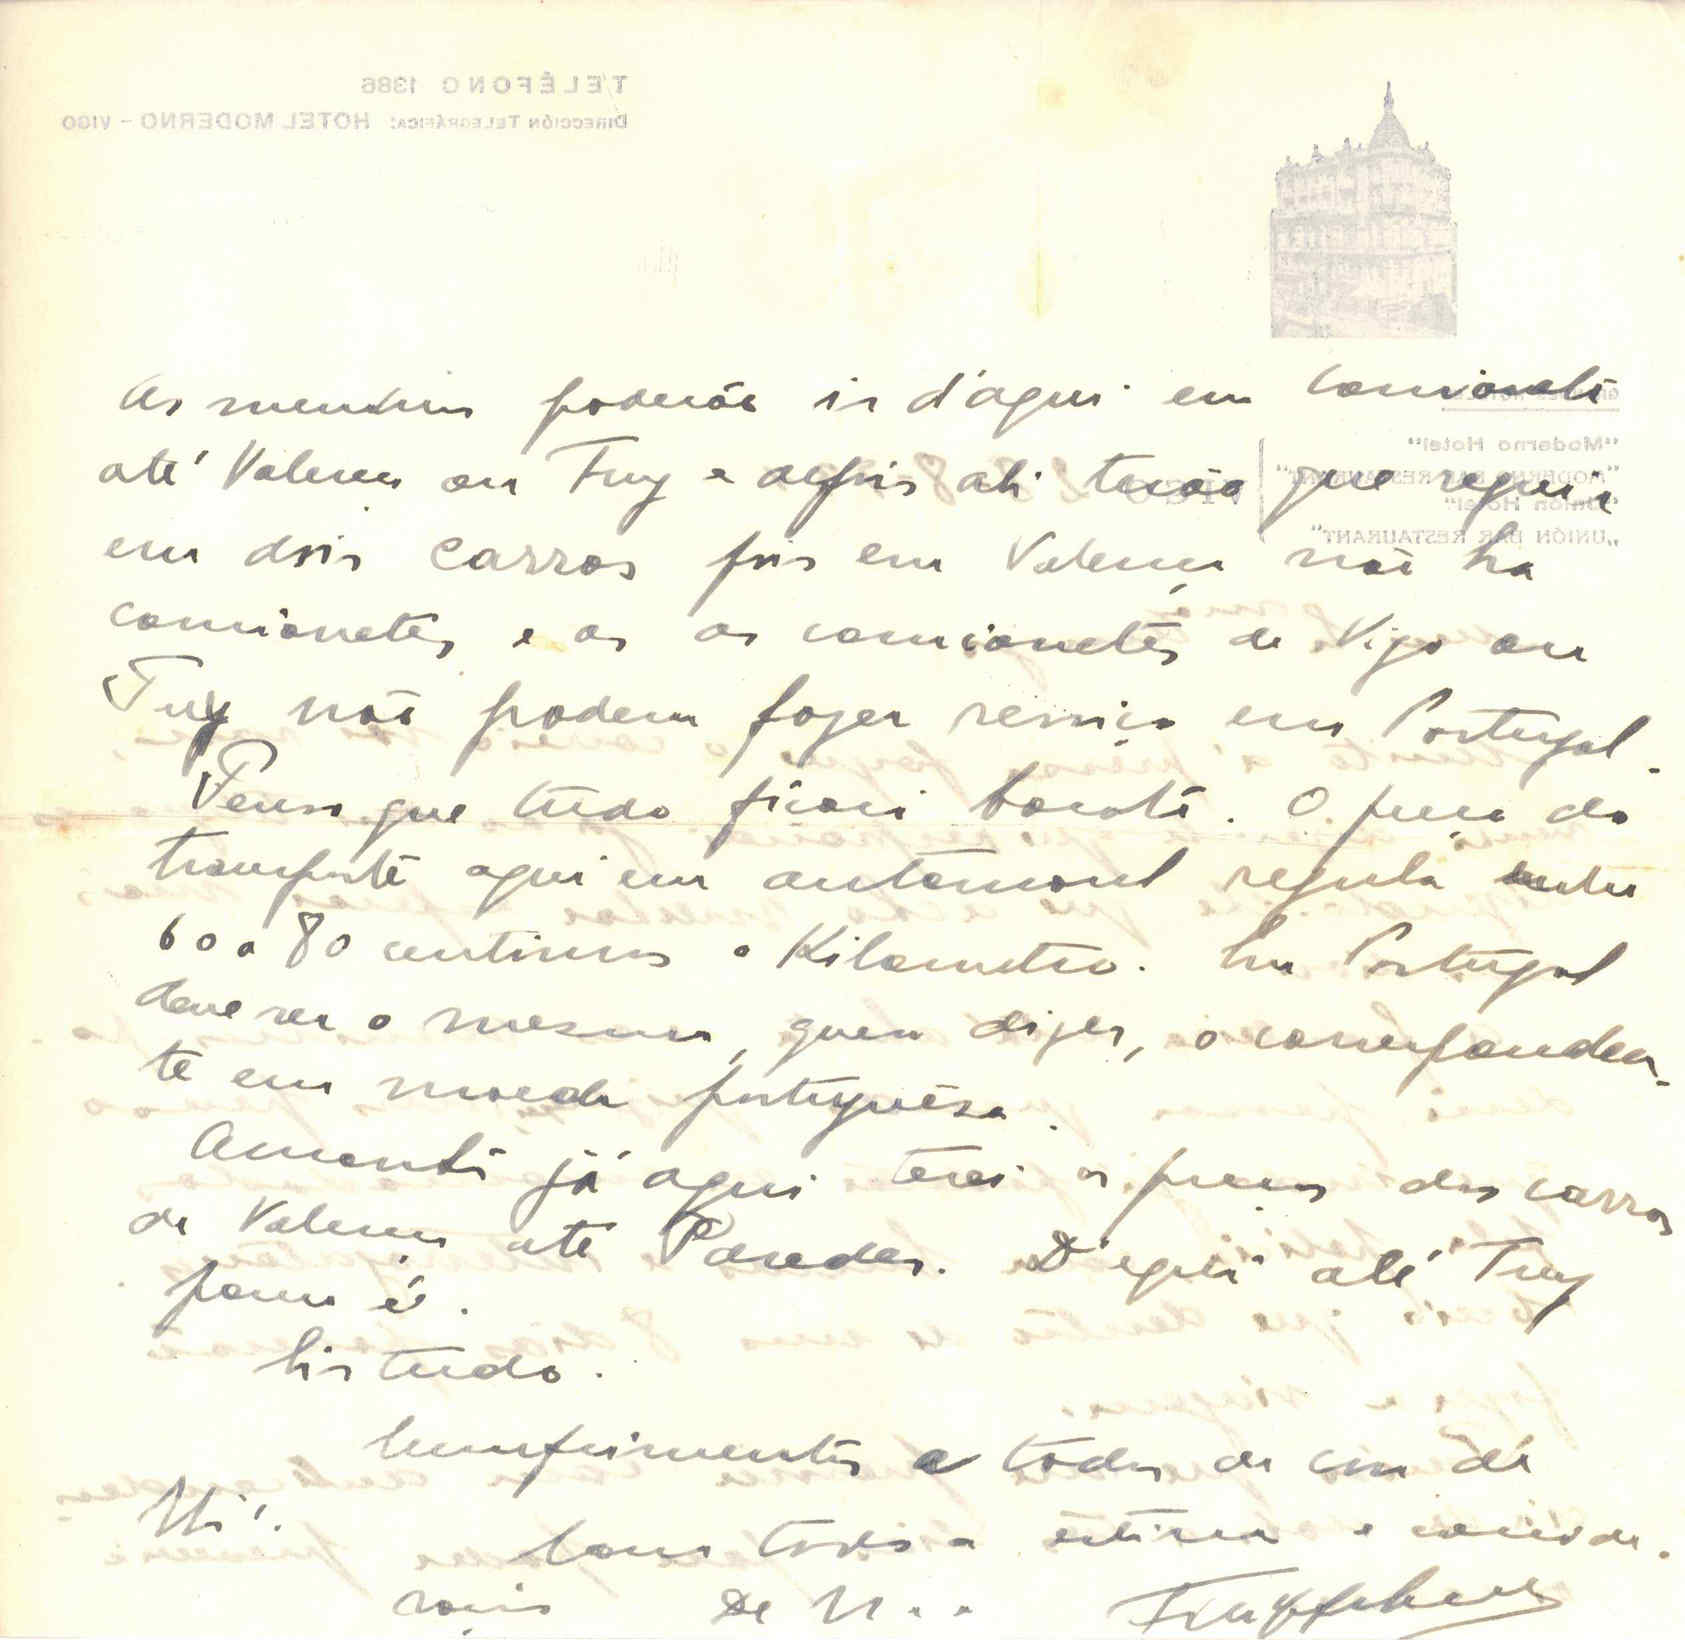 TELÉFONO 1386
DIRECCIÓN TELEGRÁFICA: HOTEL MODERNO - VIGO
"Moderno Hotel"
"MODERNO BAR RESTAURANT"
"Unión Hotel"
"UNIÓN BAR RESTAURANT"
As meninas poderão ir d'aqui em camioneta
até Valença ou Tuy e depois ali terão que seguir
em dois carros pois em Valença não ha
camionetes e as as camionetes de Vigo ou
Tuy não podem fazer serviço em Portugal.
Penso que tudo ficará barato. O preço do
transporte aqui em automovel regula entre
60 a 80 centimos o Kilometro. Em Portugal
deve ser o mesmo, quer dizer, o corresponden-
te em moeda portuguêsa.
Amanhã já aqui terei os preços dos carros
de Valença até Paredes. D'aqui até Tuy
pouco é.
Eis tudo.
Cumprimentos a todos de casa de
Com toda a estima e conside-
ração De V. . .